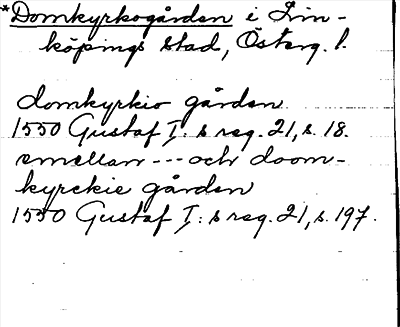 *Domkyrkogården i Lin-
köpings stad, Österg. l.
domkyrkio gården
1550 Gustaf I:s reg. 21, s. 18.
emellan --- och doom-
kyrckie gården
1550 Gustaf I:s reg. 21, s. 197.